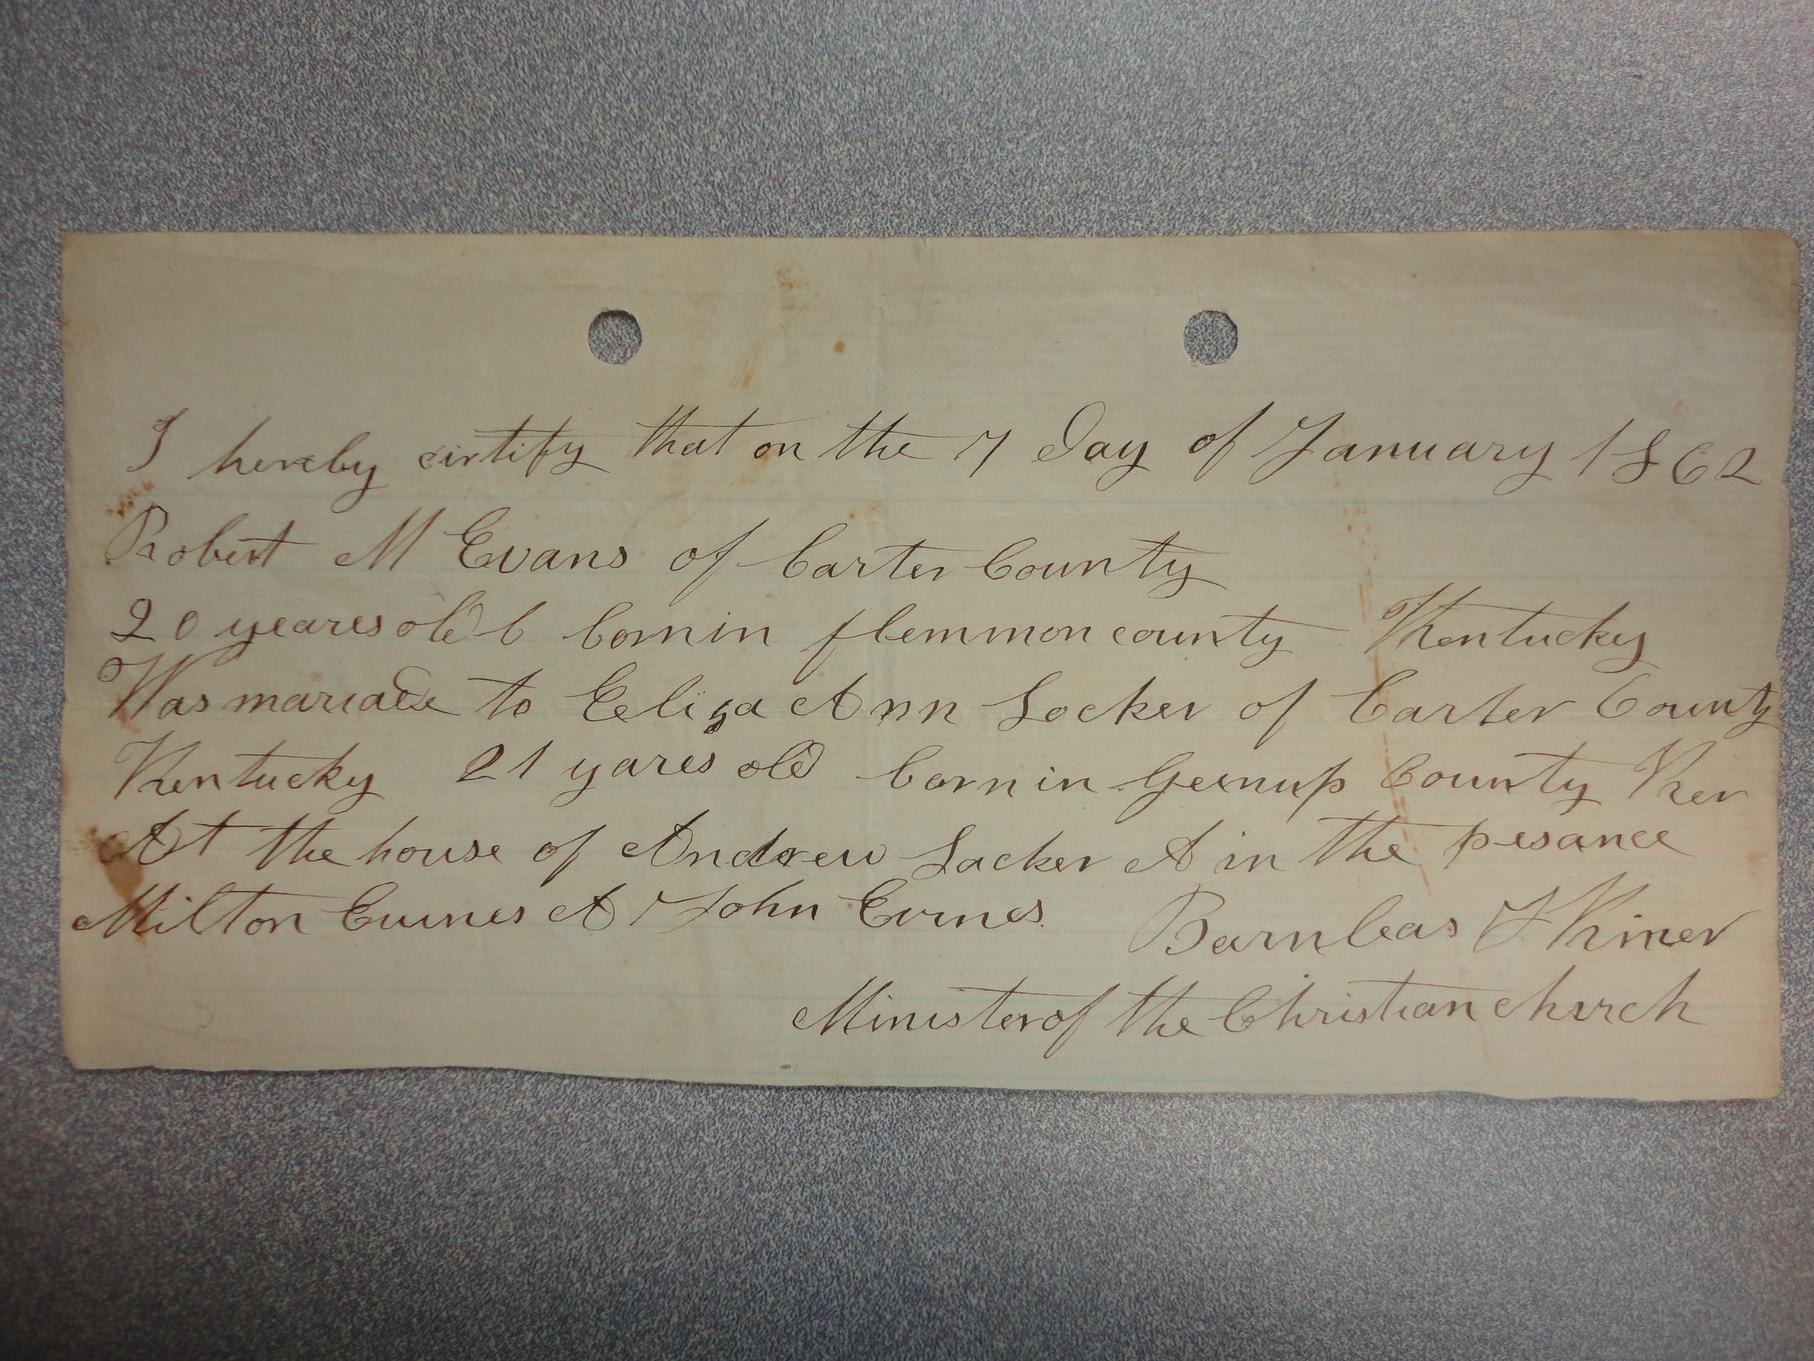 I hereby cirtify that on the 7 Day of January 1862
Robert M Evans of Carter County
20 yeares old b bornin flemmon county Kentucky
Was mariade to Eeliza Ann Locker of Carter County
Kentucky 21 yares old bornin Geenup County Ken
At the house of Andrew Lacker A in the presance
Milton Evines A John Evines
Barnbeas F Kiner
Minister of the Christian church